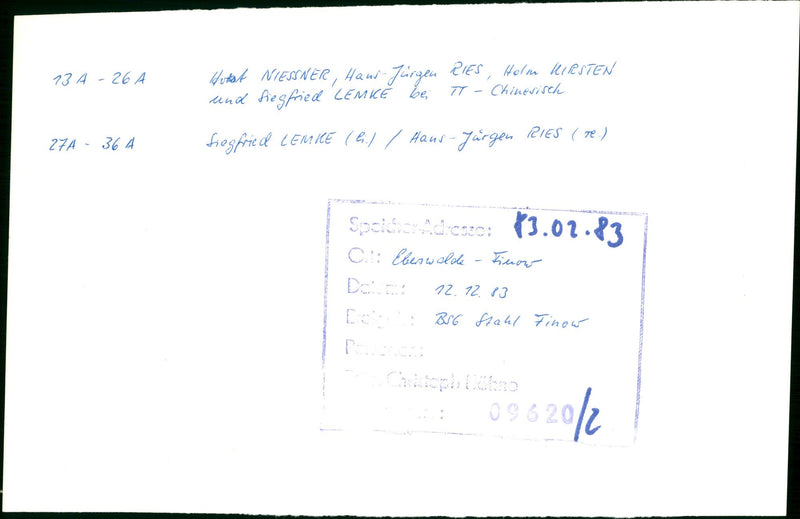 13A - 26A Horst NIESSNER, Hans-Jürgen RIES, Holm KIRSTEN
und Siegfried LEMKE bei TT - Chinesisch
27A - 36A Siegfried LEMKE (li.) / Hans-Jürgen RIES (re.)
Speicher-Adresse: 83.02.83
Ort: Eberswalde - Finow
Datum: 12.12.83
Ereignis: BSG Stahl Finow
Personen:
Christoph Höhne
09620/2